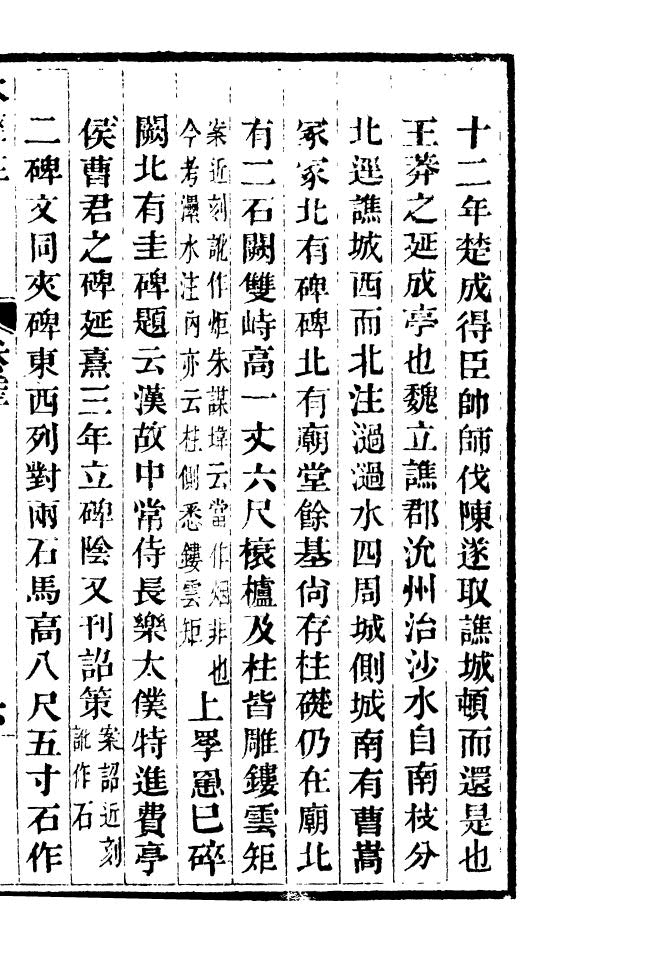 十二年楚成得臣帥師伐陳遂取譙城頓而還是也
王莽之延成亭也魏立譙郡沇州治沙水自南枝分
北逕譙城西而北注濄濄水四周城側城南有曹嵩
冢冢北有碑碑北有廟堂餘基尚存柱礎仍在廟北
有二石闕雙峙高一丈六尺榱櫨及柱皆雕鏤雲矩
案近刻訛作炬朱謀㙔云當作烟非也
今考濕水注內亦云柱側悉鏤雲矩
上罦罳已碎
闕北有圭碑題云漢故中常侍長樂太僕特進費亭
侯曹君之碑延熹三年立碑陰又刊詔策
案詔近刻
訛作石
二碑文同夾碑東西列對兩石馬高八尺五寸石作